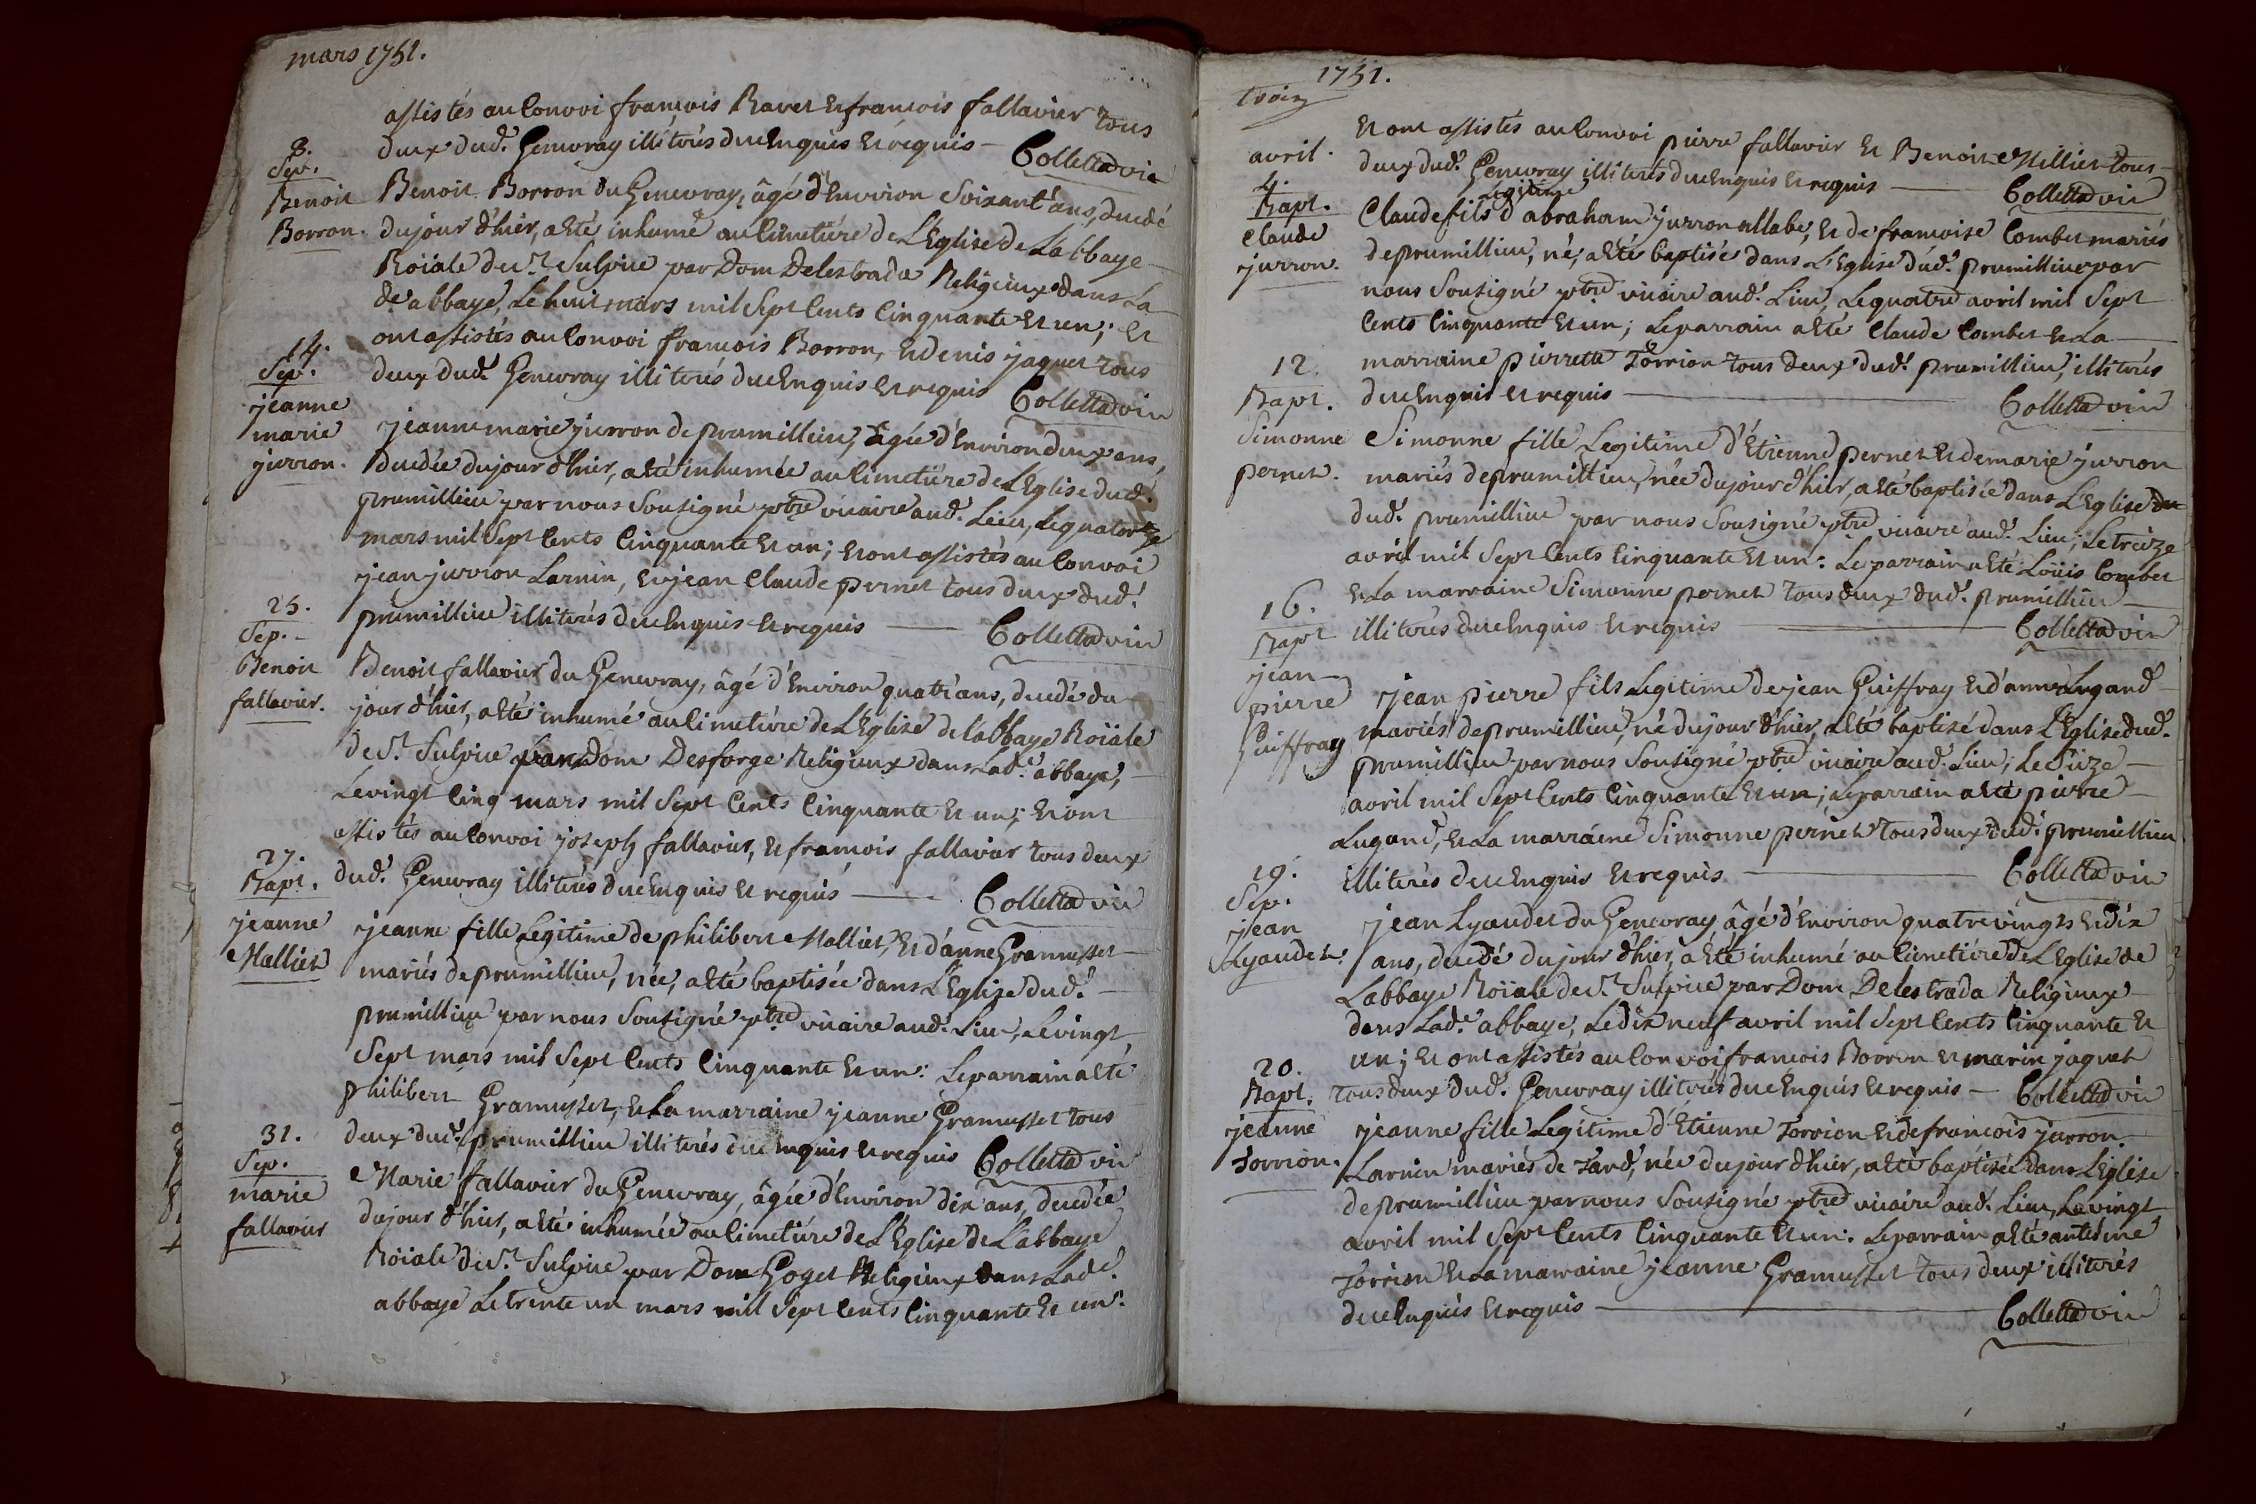 mars 1751.
assistés au Convoi françois Ravet et françois fallavier tous
deux dud.t Genevray illiterés de ce Enquis et requis — Collettavin
8.
Sep.
Benoit
Borron.
Benoit Borron du Genevray, âgé d'Environ Soixant'ans, decedé
du jour d'hier, a Eté inhumé au Cimetiére de L'Eglise de Labbaye
Roïale de St. Sulpice par Dom Delestrada Religieux dans La
de abbaye, Le huit mars mil Sept Cents Cinquante Et un; Et
ont assistés au Convoi françois Borron, Et denis jaquet tous
deux dud.t Genevray illiterés de ce Enquis et requis Collettavin
14.
Sep.
jeanne
marie
jurron.
jeanne marie jurron de prumillieu, âgée d'Environ deux ans,
decedée du jour d'hier, a Eté inhumée au Cimetiére de L'Eglise dud.t
prumillieu par nous Sousigné ptre vicaire aud.t Lieu, Le quatorze
mars mil Sept Cents Cinquante Et un; Et ont assistés au Convoi
jean jurron Larnin, Et jean Claude pernet tous deux dud.t
prumillieu illiterés de ce Enquis et requis — Collettavin
25.
Sep.
Benoit
fallavier.
Benoit fallavier du Genevray, âgé d'Environ quatr'ans, decedé du
jour d'hier, a Eté inhumé au Cimetiére de L'Eglise de Labbaye Roïale
de St. Sulpice par Dom Desforge Religieux dans Lad.e abbaye,
Le vingt Cinq mars mil Sept Cents Cinquante Et un; Et ont
assistés au Convoi joseph fallavier, Et françois fallavier tous deux
dud.t Genevray illiterés de ce Enquis Et requis — Collettavin
27.
Bapt.
jeanne
Mallier
jeanne fille Legitime de philibert Mallier, Et d'anne Gramusset
mariés de prumillieu, née, a Eté baptisée dans L'Eglise dud.t
prumillieu par nous Sousigné ptre vicaire aud.t Lieu, Le vingt
Sept mars mil Sept Cents Cinquante Et un: Le parrain a Eté
philibert Gramusset, Et La marraine jeanne Gramusset tous
deux dud.t prumillieu illiterés de ce Enquis Et requis Collettavin
31.
Sep.
marie
fallavier
Marie fallavier du Genevray, âgée d'Environ dix ans, decedée
du jour d'hier, a Eté inhumée au Cimetiére de L'Eglise de Labbaye
Roïale de St. Sulpice par Dom Goget Religieux dans Lad.e
abbaye Le trente un mars mil Sept Cents Cinquante Et un.
1751.
troiz
Et ont assistés au Convoi pierre fallavier Et Benoit Mellier tous
deux dud.t Genevray illiterés de ce Enquis Et requis — Collettavin
avril.
4.
Bapt.
Claude
jurron.
Legitime
Claude fils d'abraham jurron allabe, Et de françoise Combet mariés
de prumillieu, né, a Eté baptisé dans L'Eglise dud.t prumillieu par
nous Sousigné ptre vicaire aud.t Lieu, Le quatre avril mil Sept
Cents Cinquante Et un; Le parrain a Eté Claude Combet Et La
marraine pierrette Torrion tous deux dud.t prumillieu, illiterés
de ce Enquis Et requis — Collettavin
12.
Bapt.
Simonne
pernet.
Simonne fille Legitime d'Etienne pernet Et de marie jurron
mariés de prumillieu, née du jour d'hier, a Eté baptisée dans L'Eglise
dud.t prumillieu par nous Sousigné ptre vicaire aud.t Lieu, Le treize
avril mil Sept Cents Cinquante Et un: Le parrain a Eté Loüis Combet
Et La marraine Simonne pernet tous deux dud.t prumillieu
illiterés de ce Enquis Et requis — Collettavin
16.
Bapt
jean
pierre
Guiffray
jean pierre fils Legitime de jean Guiffray Et d'anne Lugand
mariés de prumillieu, né du jour d'hier, a Eté baptisé dans L'Eglise dud.t
prumillieu par nous Sousigné ptre vicaire aud.t Lieu, Le Seize
avril mil Sept Cents Cinquante Et un; Le parrain a Eté pierre
Lugand, Et La marraine Simonne pernet tous deux dud.t prumillieu
illiterés de ce Enquis Et requis — Collettavin
19.
Sep.
jean
Lyaudet.
jean Lyaudet du Genevray, âgé d'Environ quatre vingts Et dix
ans, decedé du jour d'hier, a Eté inhumé au Cimetiére de L'Eglise de
Labbaye Roïale de St. Sulpice par Dom Delestrada Religieux
dans Lad.e abbaye, Le dix neuf avril mil Sept Cents Cinquante Et
un; Et ont assistés au Convoi françois Borron Et marin jaquet
tous deux dud.t Genevray illiterés de ce Enquis Et requis — Collettavin
20.
Bapt.
jeanne
Torrion.
jeanne fille Legitime d'Etienne Torrion Et de françois jurron
Larnin mariés de Tard, née du jour d'hier, a Eté baptisée dans L'Eglise
de prumillieu par nous Sousigné ptre vicaire aud.t Lieu, Le vingt
avril mil Sept Cents Cinquante Et un. Le parrain a Eté antelme
Torrion Et La marraine jeanne Gramusset tous deux illiterés
de ce Enquis Et requis — Collettavin